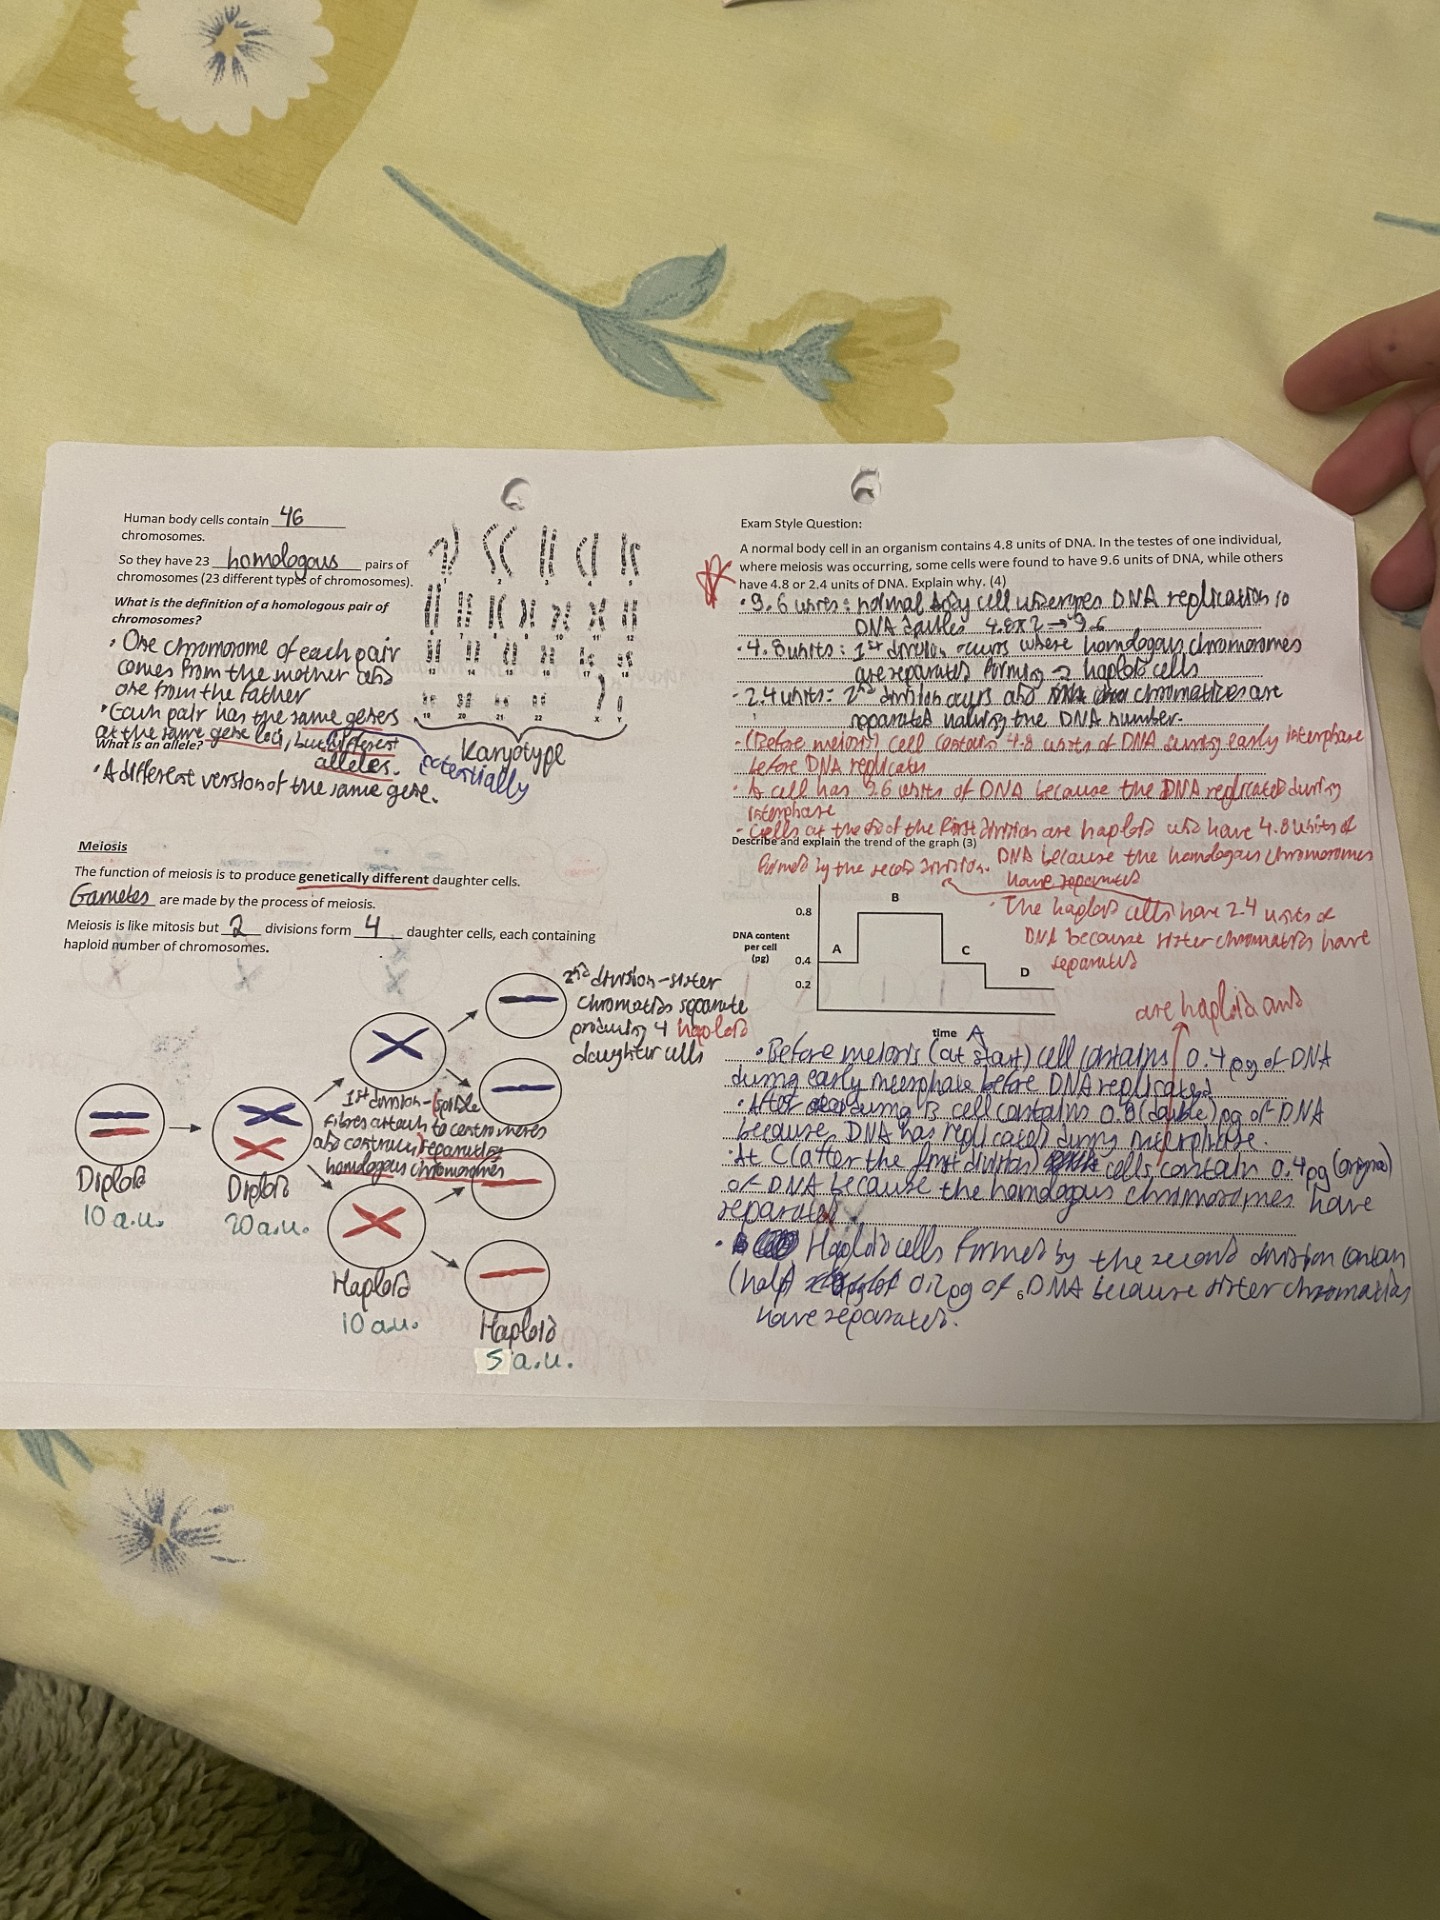 Human body cells contain 46
chromosomes.
So they have 23 homologous pairs of
chromosomes (23 different types of chromosomes).
What is the definition of a homologous pair of
chromosomes?
• One chromosome of each pair
comes from the mother and
one from the father
• Each pair has the same genes
at the same gene loci, but different
alleles.
potentially
What is an allele?
• A different version of the same gene.
1 2 3 4 5
6 7 8 9 10 11 12
13 14 15 16 17 18
19 20 21 22 X Y
Karyotype
Meiosis
The function of meiosis is to produce genetically different daughter cells.
Gametes are made by the process of meiosis.
Meiosis is like mitosis but 2 divisions form 4 daughter cells, each containing
haploid number of chromosomes.
2nd division - sister
chromatids separate
producing 4 haploid
daughter cells
1st division - spindle
fibres attach to centromeres
and contract separating
homologous chromosomes
Diploid
10 a.u.
Diploid
20 a.u.
Haploid
10 a.u.
Haploid
5 a.u.
Exam Style Question:
A normal body cell in an organism contains 4.8 units of DNA. In the testes of one individual,
where meiosis was occurring, some cells were found to have 9.6 units of DNA, while others
have 4.8 or 2.4 units of DNA. Explain why. (4)
• 9.6 units: normal body cell undergoes DNA replication so
DNA doubles 4.8x2 → 9.6
• 4.8 units: 1st division occurs where homologous chromosomes
are separated forming 2 haploid cells
- 2.4 units: 2nd division occurs and chromatids are
separated halving the DNA number.
- (Before meiosis) cell contains 4.8 units of DNA during early interphase
before DNA replicates
• A cell has 9.6 units of DNA because the DNA replicated during
interphase
- Cells at the end of the first division are haploid and have 4.8 units of
DNA because the homologous chromosomes
have separated
Describe and explain the trend of the graph (3)
formed by the second division.
• The haploid cells have 2.4 units of
DNA because sister chromatids have
separated
DNA content
per cell
(pg)
0.8
0.4
0.2
A
B
C
D
time
are haploid and
A
• Before meiosis (at start) cell contains 0.4 pg of DNA
during early interphase before DNA replicated
• After during B cell contains 0.8 (double) pg of DNA
because DNA has replicated during interphase.
• At C (after the first division) cells contain 0.4pg (original)
of DNA because the homologous chromosomes have
separated
• Haploid cells formed by the second division contain
(half) 0.2pg of DNA because sister chromatids
have separated.
6